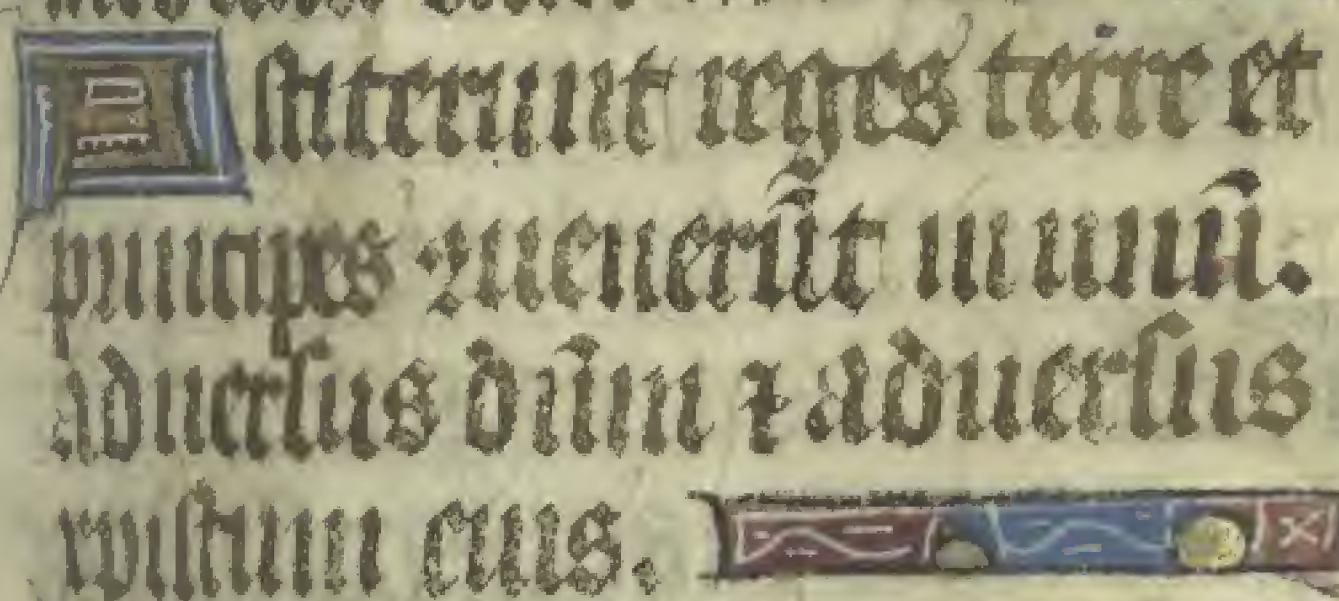 Astiterunt reges terre et
principes ꝯuenerūt in unū.
aduersus dūm ⁊ aduersus
xp̄istum eius.